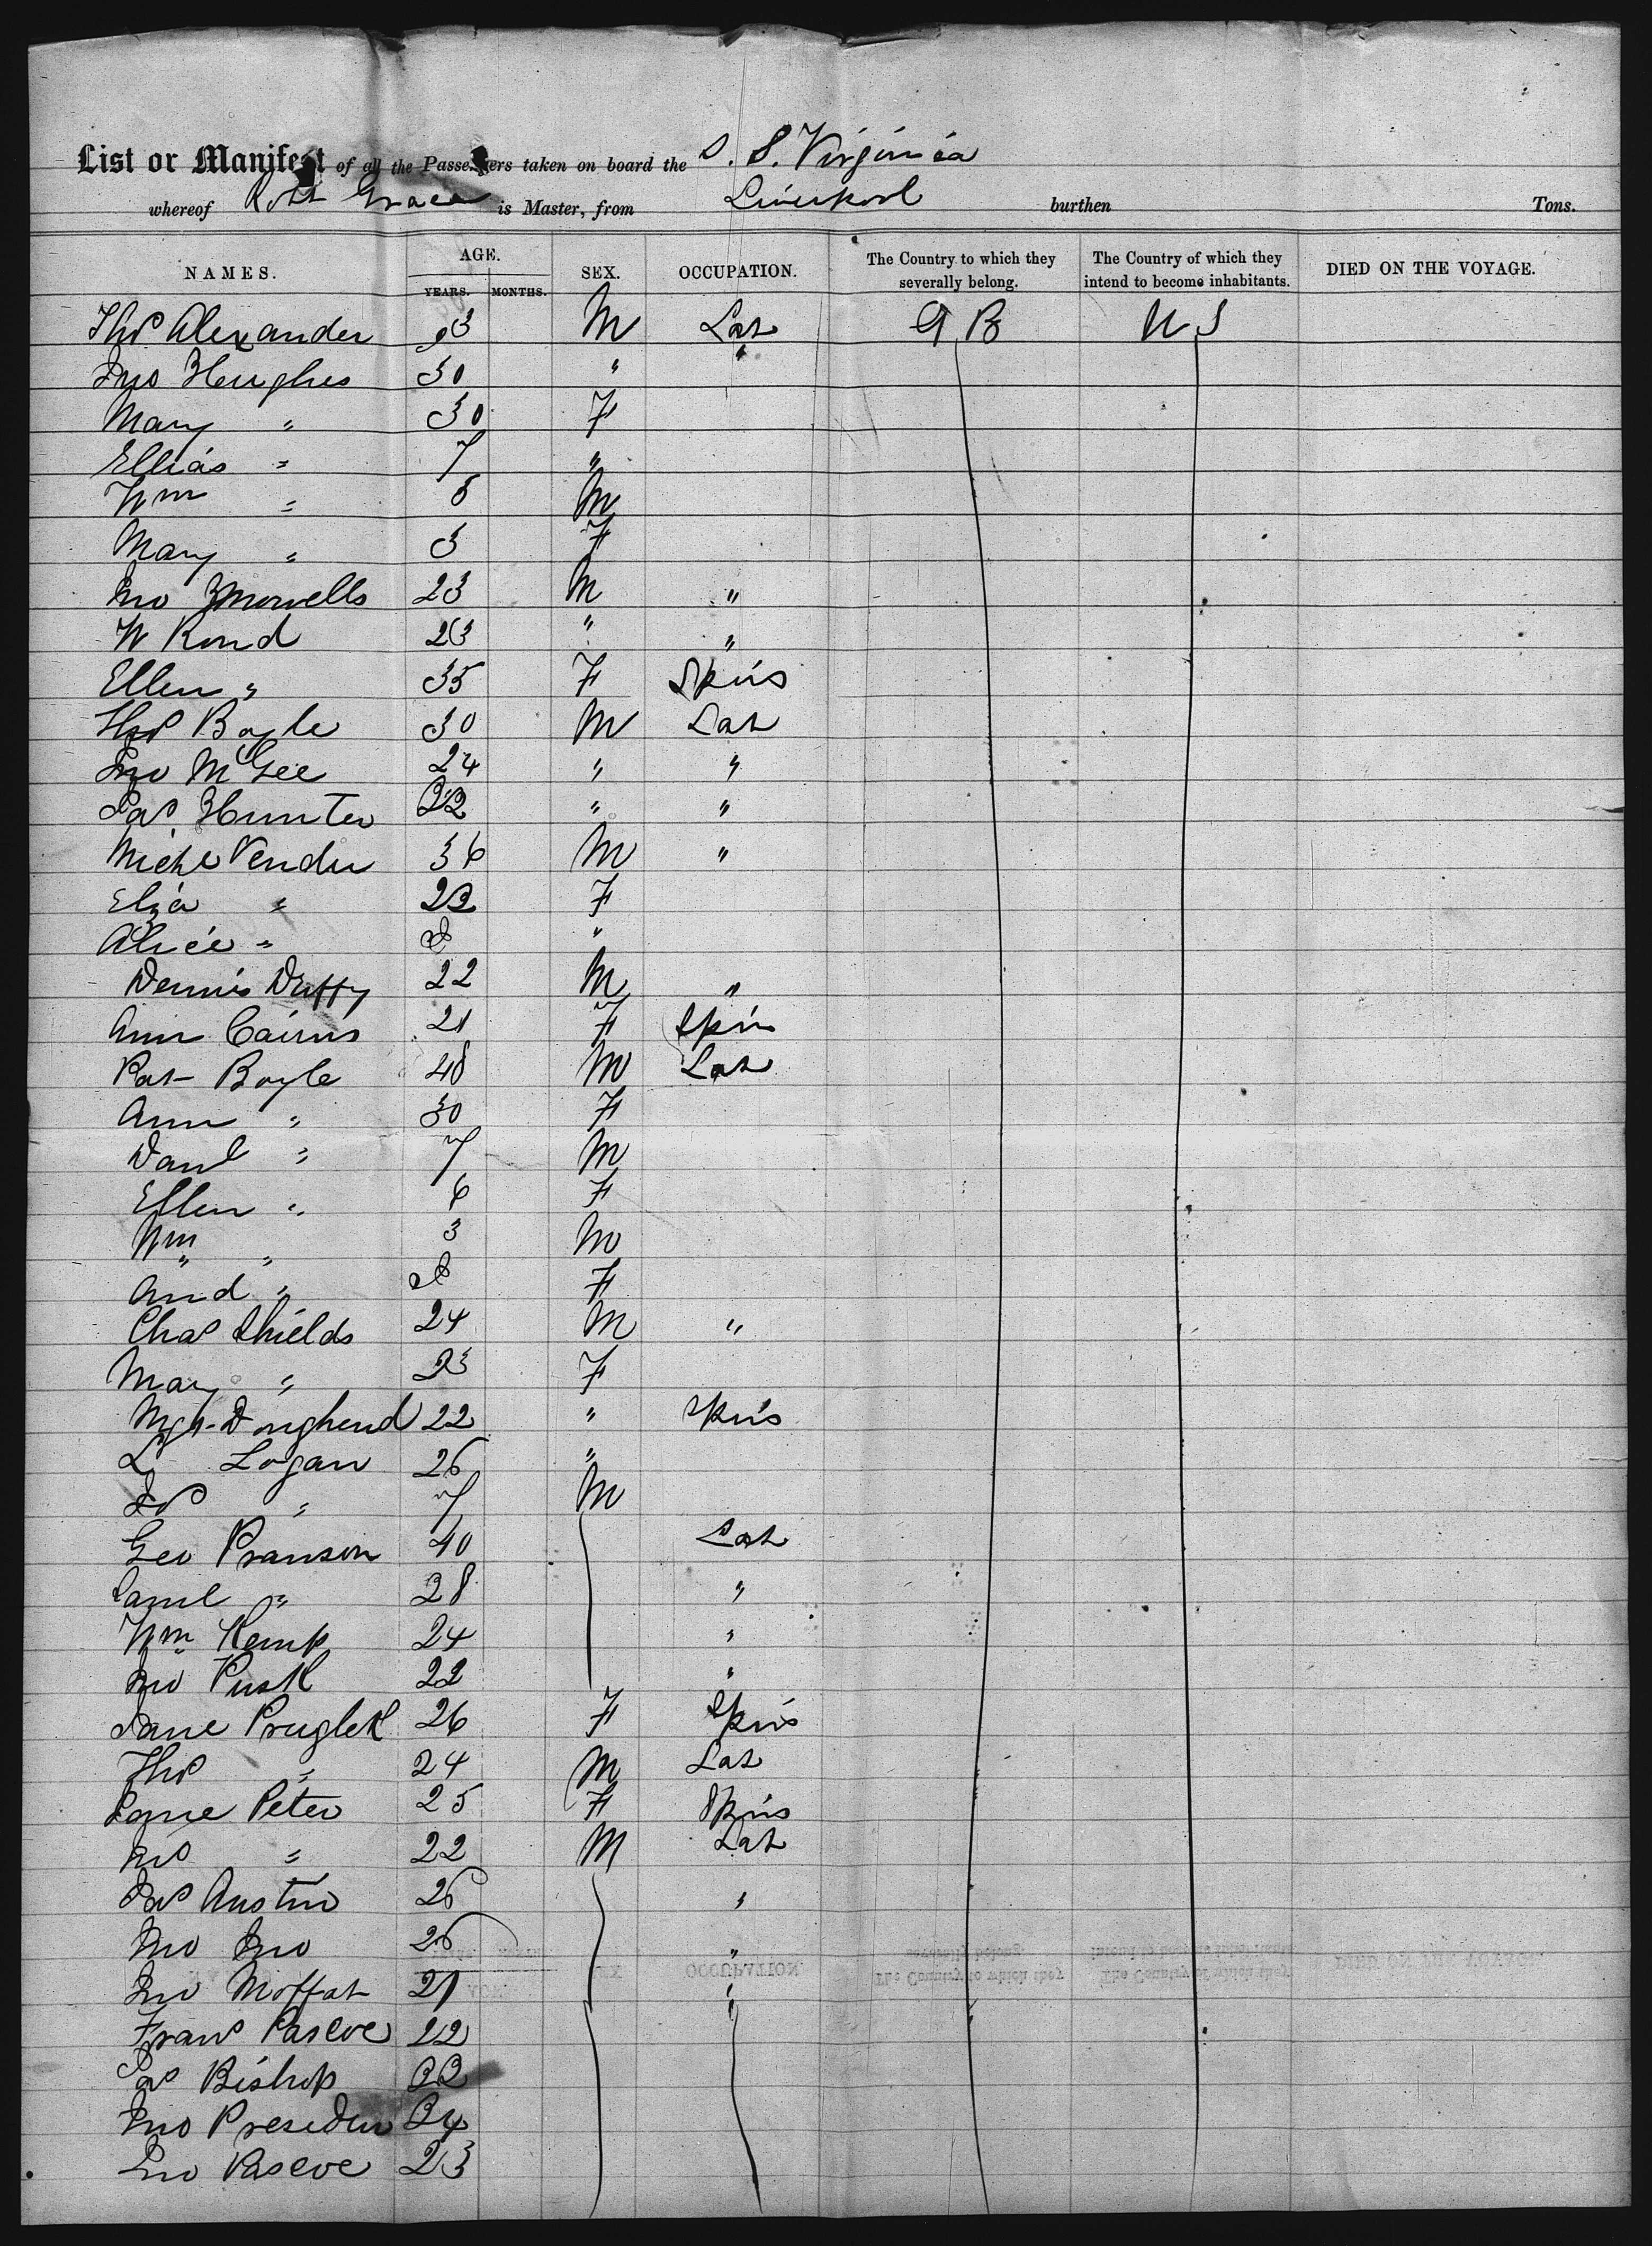 List or Manifest of all the Passengers taken on board the S. S. Virginia
whereof Robt Grace is Master, from Liverpool burthen Tons.
NAMES. AGE. YEARS. MONTHS. SEX. OCCUPATION. The Country to which they severally belong. The Country of which they intend to become inhabitants. DIED ON THE VOYAGE.
Thos Alexander M Lab G B U S
Jno Hughes 30 " "
Mary " 30 F
Ellias " 7 "
Wm " 5 M
Mary " 3 F
Jno 23 M "
W Rond 23 " "
Ellen " 35 F Spins
Thos Boyle 30 M Lab
Jno McGee 24 " "
Jas Hunter 22 " "
Michl 36 M "
Eliza " 23 F
Alice " "
Dennis Duffy 22 M "
Ann Cairns 21 F Spin
Pat Boyle 48 M Lab
Ann " 30 F
Danl " 7 M
Ellen " 6 F
Wm " 3 M
And " F
Chas Shields 24 M "
Mary " 23 F
22 " Spins
Logan 26 "
" 7 M
Geo Pranson 40 Lab
Saml " 28 "
Wm Kemp 24 "
Jno Pusk 22 "
Jane 26 F Spins
Thos " 24 M Lab
Jane Peter 25 F Spins
Jno " 22 M Lab
Jas Austin 26 "
Jno Jno 26 "
Jno Moffat 21 "
Frans Pascoe 22
Jas Bishop 22
Jno 24
Jno Pascoe 23